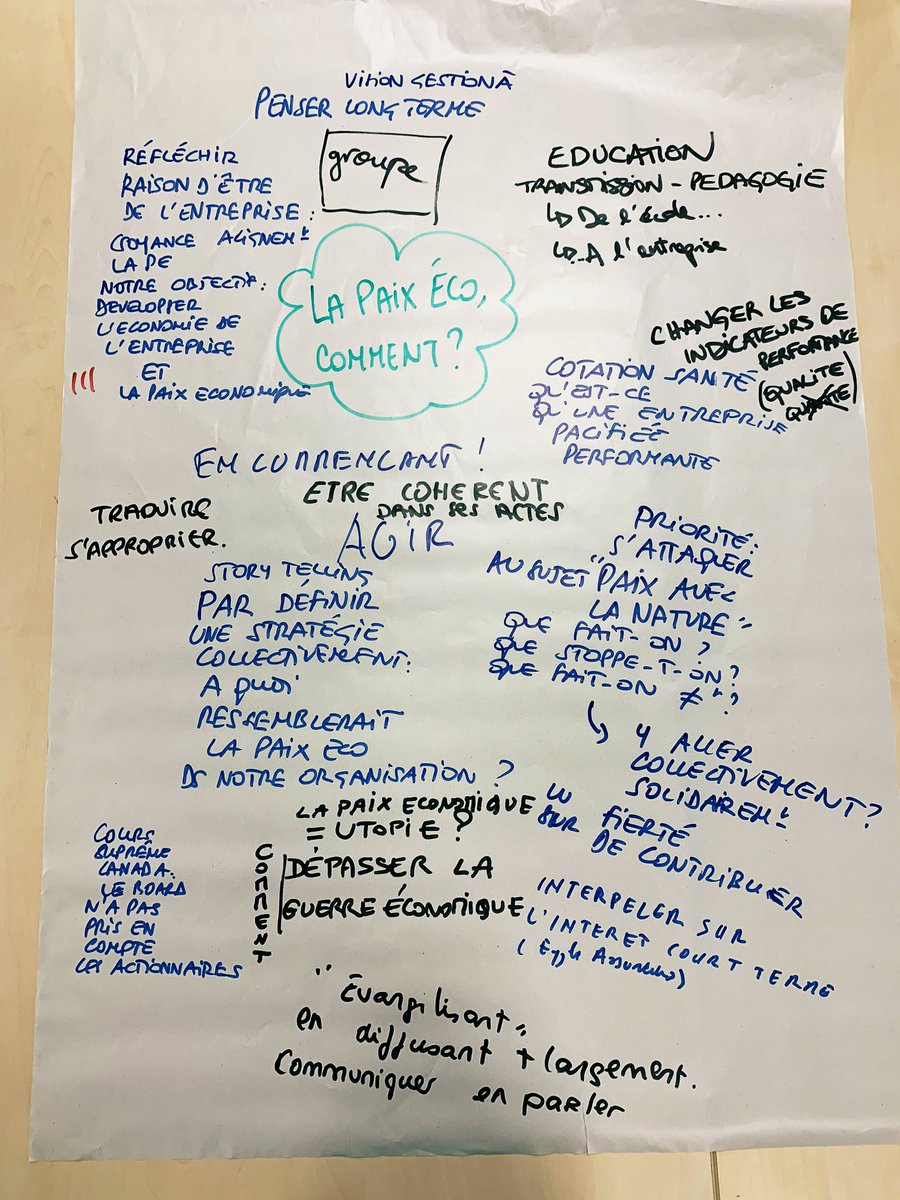 VISION GESTION À
PENSER LONG TERME
groupe
RÉFLÉCHIR
RAISON D'ÊTRE
DE L'ENTREPRISE :
CROYANCE ALIGNEMt
LA PE
NOTRE OBJECTIF :
DEVELOPPER
L'ECONOMIE DE
L'ENTREPRISE
ET
LA PAIX ECONOMIQUE
EDUCATION
TRANSMISSION - PEDAGOGIE
↳ De l'école...
↳ ..A l'entreprise
LA PAIX ÉCO,
COMMENT ?
CHANGER LES
INDICATEURS DE
PERFORMANCE
(QUALITE
QUANTITE)
COTATION SANTÉ
QU'EST-CE
QU'UNE ENTREPRISE
PACIFIÉE
PERFORMANTE
EN COMMENCANT !
ETRE COHERENT
DANS SES ACTES
TRADUIRE
S'APPROPRIER.
AGIR
STORY TELLING
PAR DÉFINIR
UNE STRATÉGIE
COLLECTIVEMENT :
A quoi
RESSEMBLERAIT
LA PAIX ECO
DS NOTRE ORGANISATION ?
PRIORITÉ :
S'ATTAQUER
AU SUJET "PAIX AVEC
LA NATURE"
QUE FAIT-ON ?
QUE STOPPE-T-ON ?
QUE FAIT-ON ≠t ?
↳ Y ALLER
COLLECTIVEMENT ?
SOLIDAIREMt
↳ FIERTÉ
SUR DE CONTRIBUER
LA PAIX ECONOMIQUE
= UTOPIE ?
COMMENT
DÉPASSER LA
GUERRE ÉCONOMIQUE
COURS
SUPRÊME
CANADA :
LE BOARD
N'A PAS
PRIS EN
COMPTE
LES ACTIONNAIRES
INTERPELER SUR
L'INTERET COURT TERME
"Évangilisant"
en diffusant + largement.
Communiquer en parler